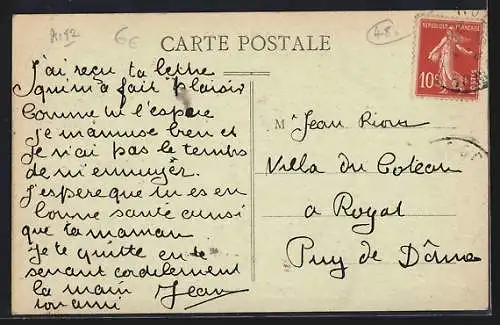 6E
48.
CARTE POSTALE
REPUBLIQUE FRANÇAISE
10c
POSTES
J'ai reçu ta lettre
qui m'a fait plaisir
Comme tu l'espere
je m'amuse bien et
Je n'ai pas le temps
de m'ennuyer.
J'espere que tu es en
bonne santé ainsi
que ta maman
Je te quitte en te
serrant cordialement
la main
ton ami Jean
M. Jean Rioux
Villa du Coteau
a Royat
Puy de Dôme